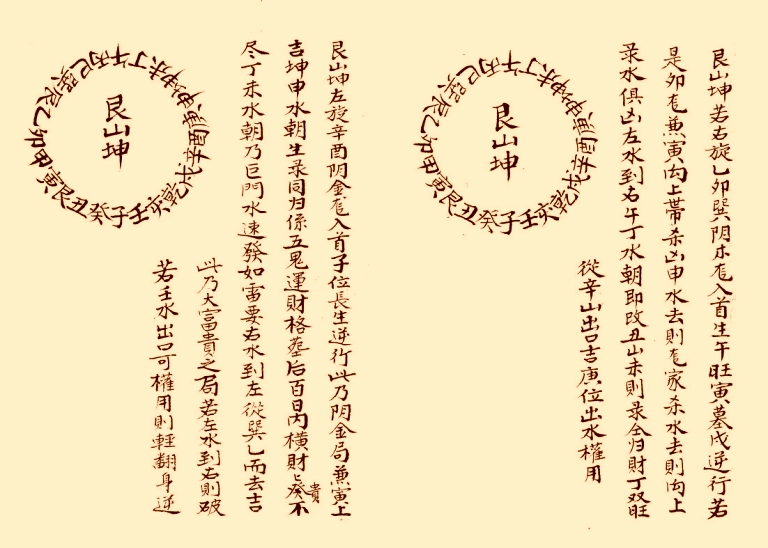 艮山坤若右旋乙卯巽阴木龙入首生午旺寅墓戌逆行若
是卯龙兼寅向上带杀凶申水去则龙家杀水去则向上
录水俱凶左水到右午丁水朝即改丑山未则录全归财丁双旺
從辛山出口吉庚位出水權用
艮山坤
午丁未坤申庚酉辛戌乾亥壬子癸丑艮寅甲卯乙辰巽巳丙
艮山坤左旋辛酉阴金龙入首子位長生逆行此乃阴金局兼寅上
吉坤申水朝生录同归係五鬼運財格墓后百日内橫財
癸不
貴
尽丁未水朝乃巨門水速發如雷要右水到左從巽乙而去吉
此乃大富貴之局若左水到右則破
若壬水出口可權用則輕翻身逆
艮山坤
午丁未坤申庚酉辛戌乾亥壬子癸丑艮寅甲卯乙辰巽巳丙